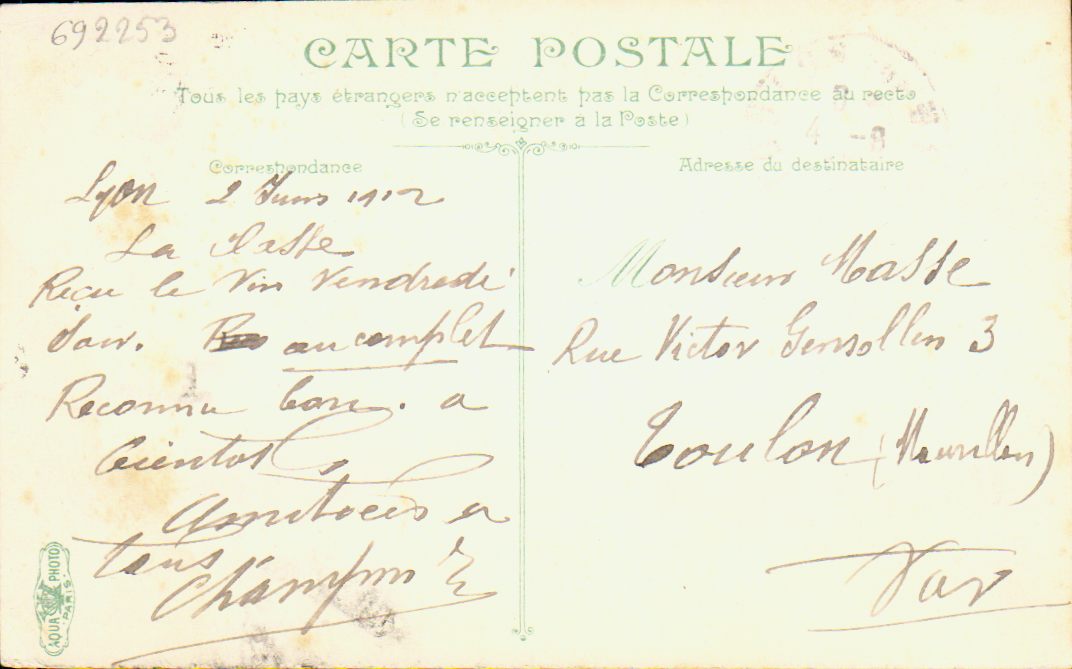 692253
CARTE POSTALE
Tous les pays étrangers n'acceptent pas la Correspondance au recto
(Se renseigner à la Poste)
Correspondance
Adresse du destinataire
Lyon 2 Juin 1912
La
Reçu le Vin Vendredi
Soir. au complet
Reconnu bon. a
bientot
Amitiees a
tous
Monsieur Masse
Rue Victor Gensollen 3
Toulon (Mourillon)
Var
AQUA PHOTO
PARIS
4 -6